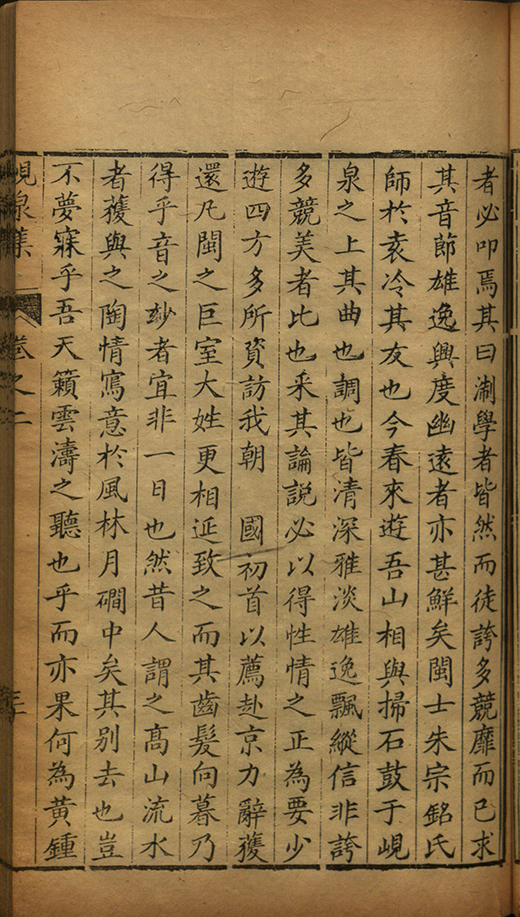 者必叩焉其曰淛學者皆然而徒誇多競靡而已求
其音節雄逸興度幽遠者亦甚鮮矣閩士朱宗銘氏
師於袁冷其友也今春來遊吾山相與掃石鼓于峴
泉之上其曲也調也皆清深雅淡雄逸飄縱信非誇
多競美者比也釆其論說必以得性情之正為要少
遊四方多所資訪我朝 國初首以薦赴京力辭獲
還凡閩之巨室大姓更相延致之而其齒髮向暮乃
得乎音之玅者宜非一日也然昔人謂之高山流水
者獲與之陶情寫意於風林月磵中矣其別去也豈
不夢寐乎吾天籟雲濤之聽也乎而亦果何為黃鍾
峴泉集 卷之二